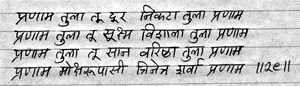 प्रणाम तुला तू दूर निकटा तुला प्रणाम
प्रणाम तुला तू सूक्ष्म विशाला तुला प्रणाम
प्रणाम तुला तू सान वरिष्ठा तुला प्रणाम
प्रणाम मोक्षरूपासी त्रिनेत्र शर्वा प्रणाम ॥२९॥